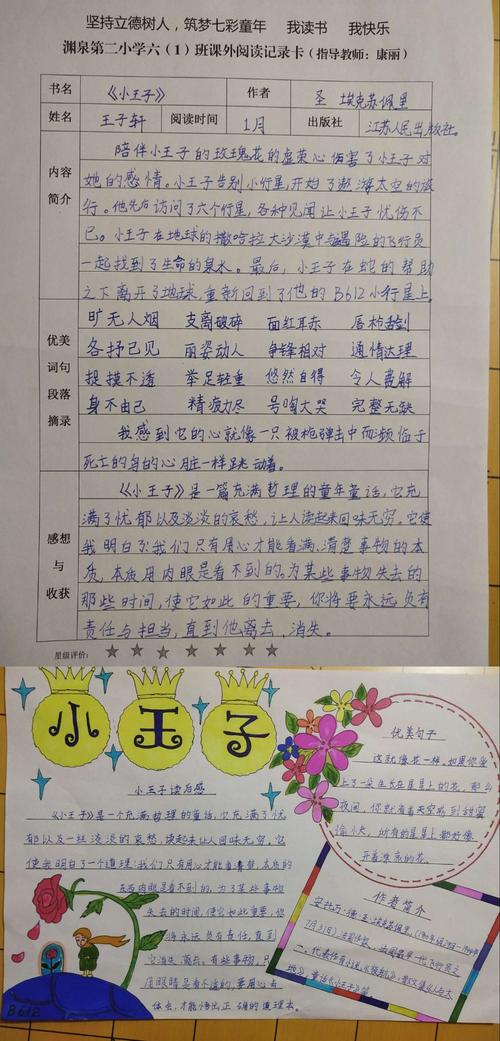 坚持立德树人，筑梦七彩童年 我读书 我快乐
渊泉第二小学六（1）班课外阅读记录卡（指导教师：康丽）
书名 《小王子》 作者 圣 埃克苏佩里
姓名 王子轩 阅读时间 1月 出版社 江苏人民出版社。
内容
简介
陪伴小王子的玫瑰花的虚荣心伤害了小王子对
她的感情。小王子告别小行星，开始了遨游太空的旅
行。他先后访问了六个行星，各种见闻让小王子忧伤不
已。小王子在地球的撒哈拉大沙漠中与遇险的飞行员
一起找到了生命的泉水。最后，小王子在蛇的帮助
之下离开了地球，重新回到了他的B612小行星上
优美
词句
段落
摘录
旷无人烟 支离破碎 面红耳赤 唇枪舌剑
各抒己见 丽姿动人 争锋相对 通情达理
捉摸不透 举足轻重 悠然自得 令人费解
身不由己 精疲力尽 号啕大哭 完整无缺
我感到它的心就像一只被枪弹击中而濒临于
死亡的鸟的心脏一样跳动着。
感想
与
收获
《小王子》是一篇充满哲理的童年童话，它充
满了忧郁以及淡淡的哀愁，让人读起来回味无穷。它使
我明白了：我们只有用心才能看满、清楚事物的本
质，本质用内眼是看不到的。为某些事物失去的
那些时间，使它如此的重要，你将要永远负有
责任与担当，直到他离去，消失。
星级评价：☆ ☆ ☆ ☆ ☆ ☆ ☆
小王子
小王子读后感
《小王子》是一个充满哲理的童话，它充满了忧
郁以及一丝淡淡的哀愁，读起来让人回味无穷，它
使我明白了一个道理：我们只有用心才能看清楚，本质的
东西肉眼是看不到的，为了某些事物
失去的时间，使它如此重要，你
将永远负有责任，直到
它消失、离去。有些事物，只
用眼睛是看不透的，要用心去
体会，才能悟出正确的道理来。
B612
优美句子
这就像花一样，如果你爱
上了一朵生长在星星上的花，那么
夜间，你就看着天空感到甜蜜
愉快，所有的星星上都好像
开着漂亮的花。
作者简介
安托万·德·圣·埃克苏佩里，（1900年6月29日-1944年
7月31日），法国作家，法国最早一代飞行员之
一。代表作有小说《夜航》，散文集《人的大
地》，童话《小王子》等